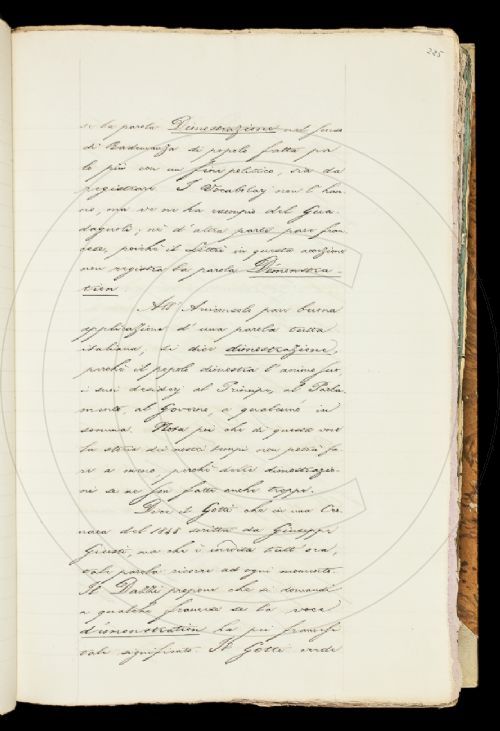 225
se la parola Dimostrazione nel senso
di Radunanza di popolo fatta per
lo più con un fine politico, sia da
registrare. I Vocabolarj non l'han-
no, ma ve ne ha esempio del Gua-
dagnoli; nè d'altra parte pare fran-
cese, poichè il Littré in questa accezione
non registra la parola Dimonstra-
tion.
All' Arciconsolo pare buona
applicazione d'una parola tutta
italiana, si dice dimostrazione,
perchè il popolo dimostra l'animo suo
i suoi desiderj al Principe, al Parla-
mento, al Governo, a qualcuno in
somma. Nota poi che di questa voce
la storia dei nostri tempi non potrà fa-
re a meno, perchè delle dimostrazio-
ni se ne son fatte anche troppe.
Dice il Gotti che in una Cro-
naca del 1848 scritta da Giuseppe
Giusti, ma che è inedita tutt'ora,
tale parola ricorre ad ogni momento.
Il Dazzi propone che si domandi
a qualche francese se la voce
démonstration ha pei francesi
tale significato. Il Gotti crede